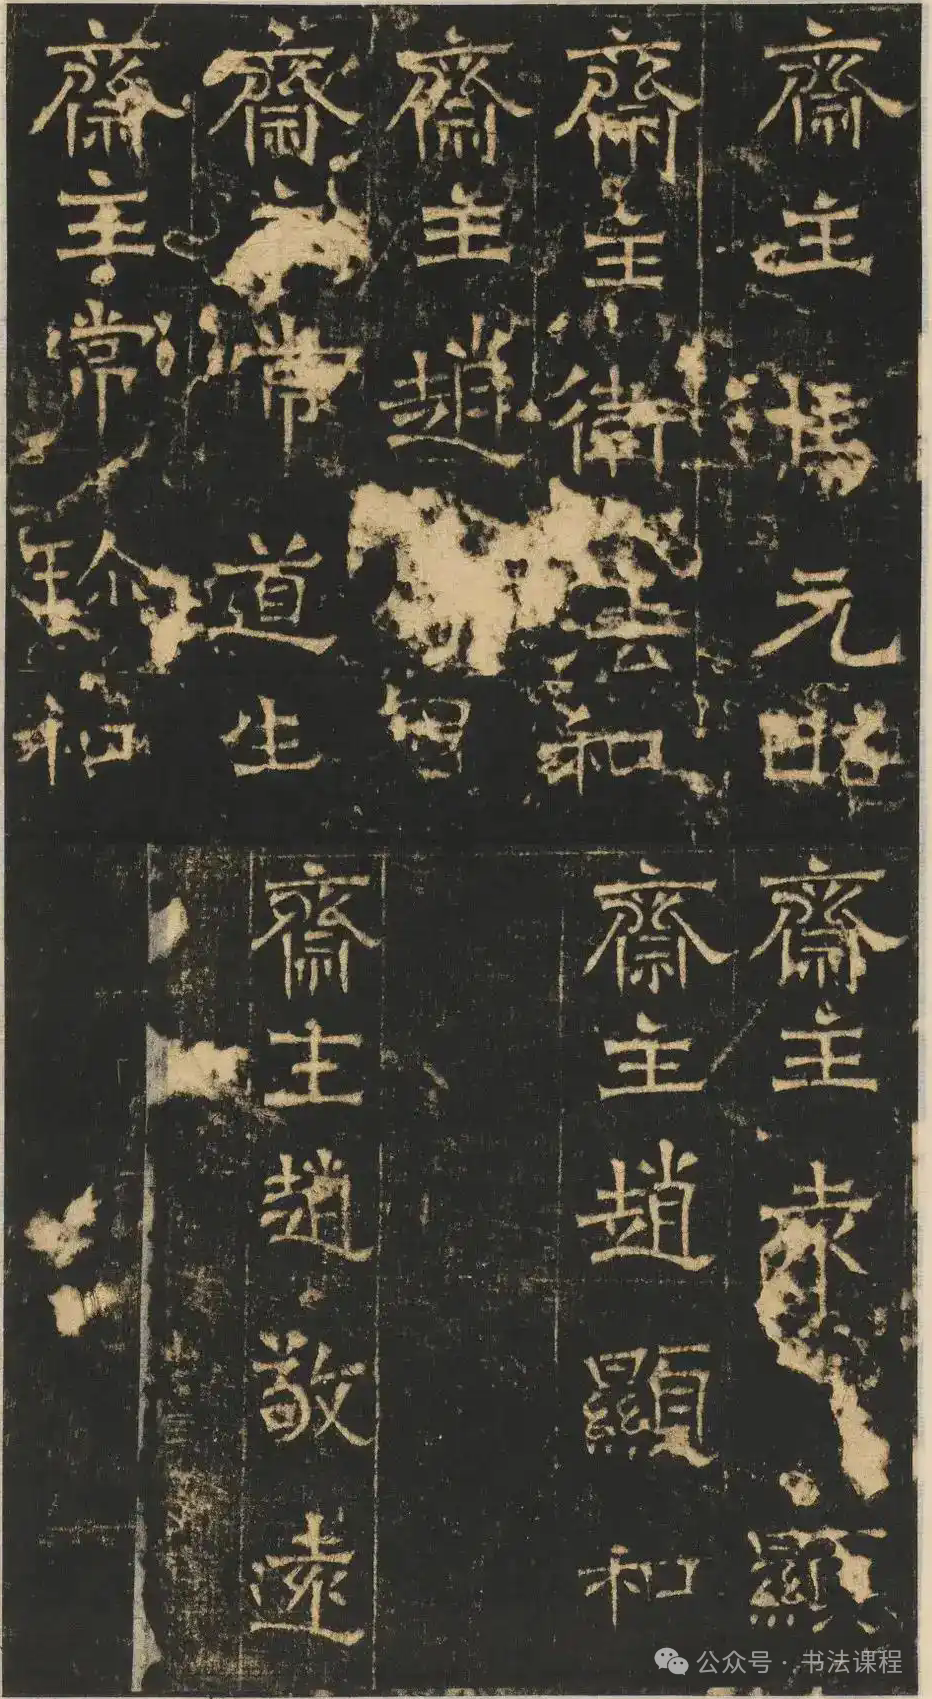 齋主馮元昭
齋主衛法和
齋主趙
齋主常道生
齋主常珍和
齋主袁顯
齋主趙顯和
齋主趙敬遠
公众号·书法课程